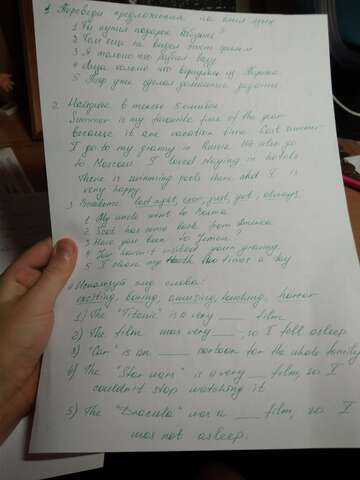 1. Переведи предложения на англ язык
1 Ты купил подарок ?
2 Том еще не видел этот фильм
3 Я только что вазу
4 только что вернулась из
5 уже сделал домашнее задание
2. Найдите в тексте 5 ошибок
Summer is my favourite time of the year
because it are vacation time. Last summer
I go to my granny in Russia. We also go
to Moscow. I loved staying in hotels
There is swimming pools there and I is
very happy
3. last night, ever, just, yet, always
1 My uncle went to
2 Scot has come back from America
3 Have you been to Yemen?
4 haven't visited your granny
5 I clean my teeth two times a day
4 Используй эти слова:
exciting, boring, amusing, touching, horror
1) The "Titanic" is a very ___ film
2) The film was very ___, so I fell asleep
3) "Cars" is an ___ cartoon for the whole family
4) The "Star wars" is a very ___ film, so I
couldn't stop watching it
5) The "Dracula" was a ___ film, so I
was not asleep.